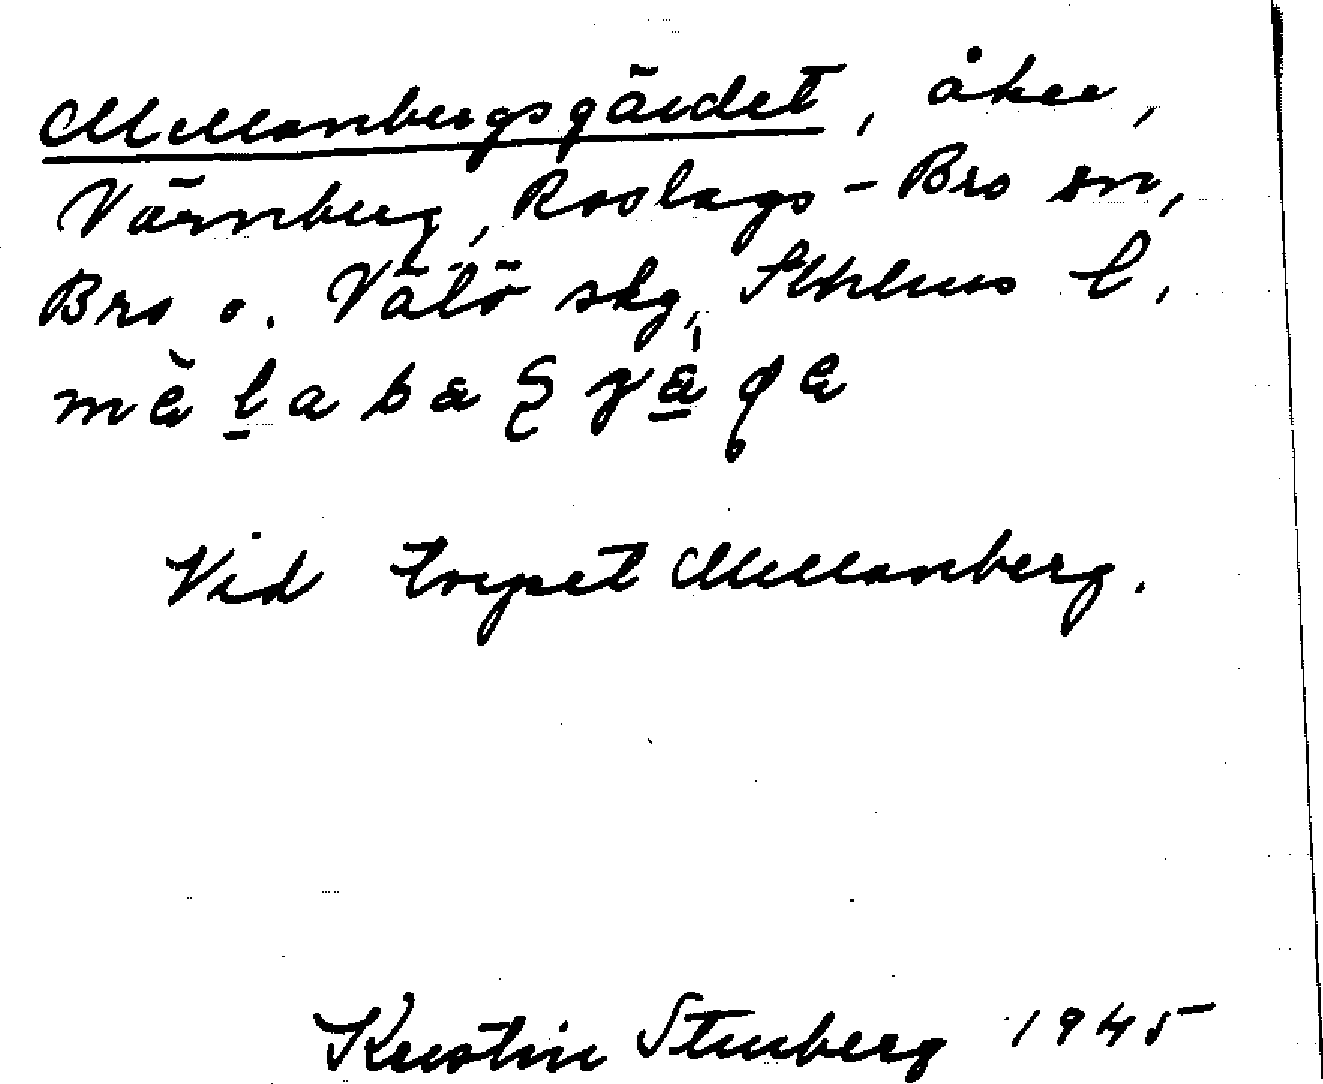 Mellanbergsgärdet, åker,
Värnberg, Roslags-Bro sn,
Bro o. Vätö skg, Sthlms l.
Vid torpet Mellanberg.
Kerstin Stenberg 1945